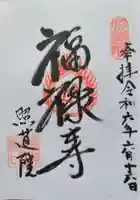 奉拝令和六年六月十六日
福禄寺
照道院